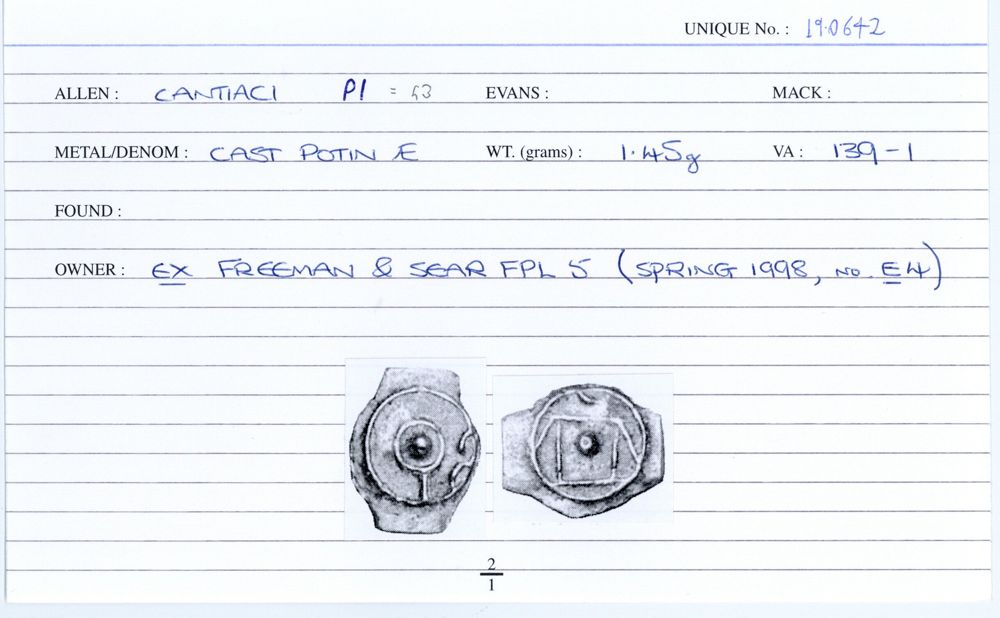 UNIQUE No. : 19.0642
ALLEN : CANTIACI P1 = 43 EVANS : MACK :
METAL/DENOM : CAST POTIN Æ WT. (grams) : 1.45g VA : 139-1
FOUND :
OWNER : EX FREEMAN & SEAR FPL 5 (SPRING 1998, NO. E4)
2
1